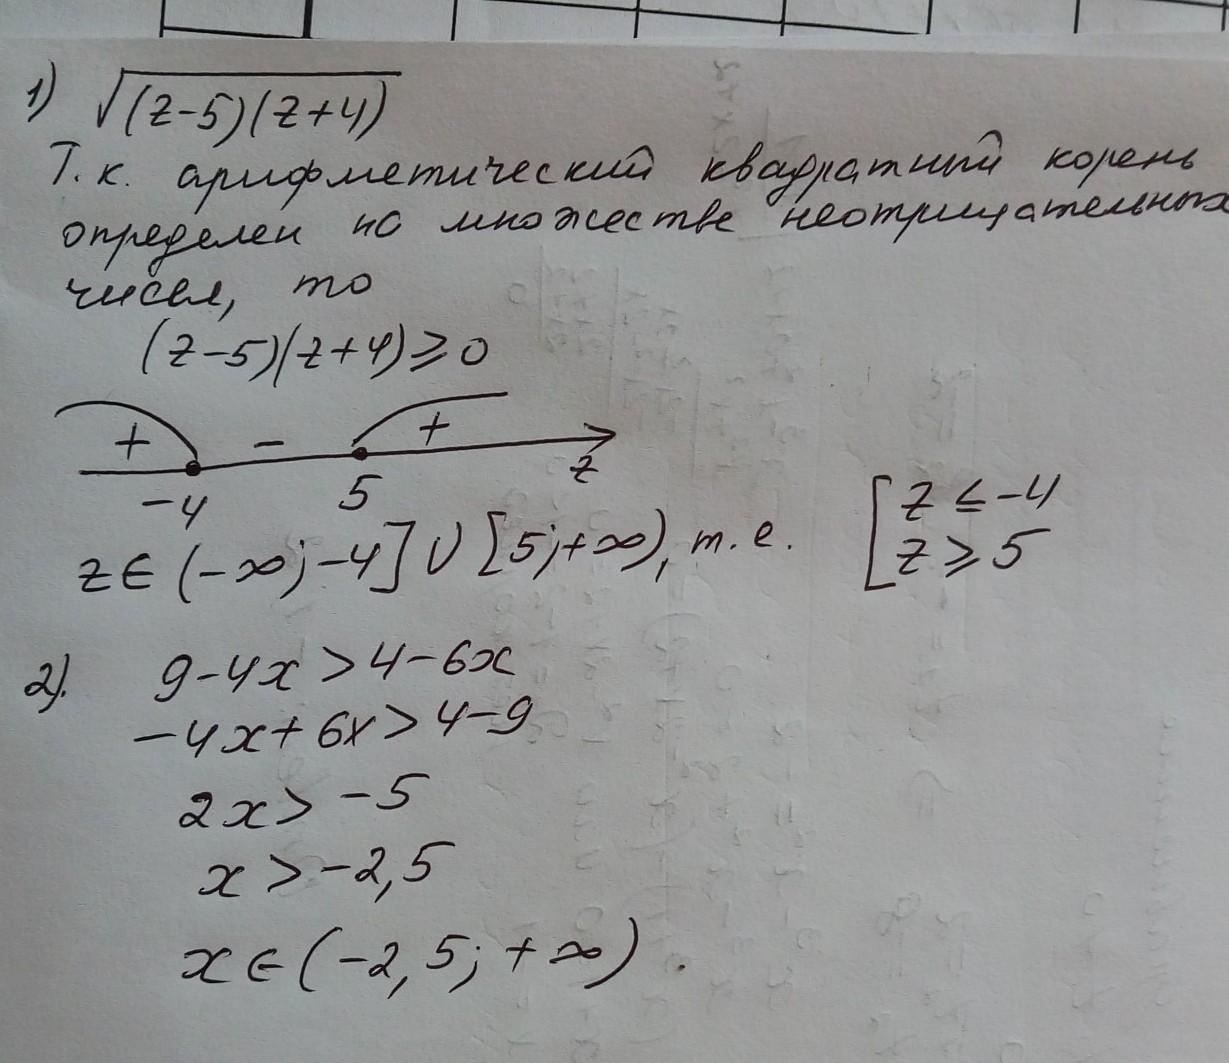 1) √(z-5)(z+4)
Т.к. арифметический квадратный корень
определен на множестве неотрицательных
чисел, то
(z-5)(z+4)⩾0
+ - +
-4 5 z
z∈(-∞;-4]∪[5;+∞), т.е. [ z ≤ -4
z ⩾ 5
2). 9-4x>4-6x
-4x+6x>4-9
2x>-5
x>-2,5
x∈(-2,5;+∞).